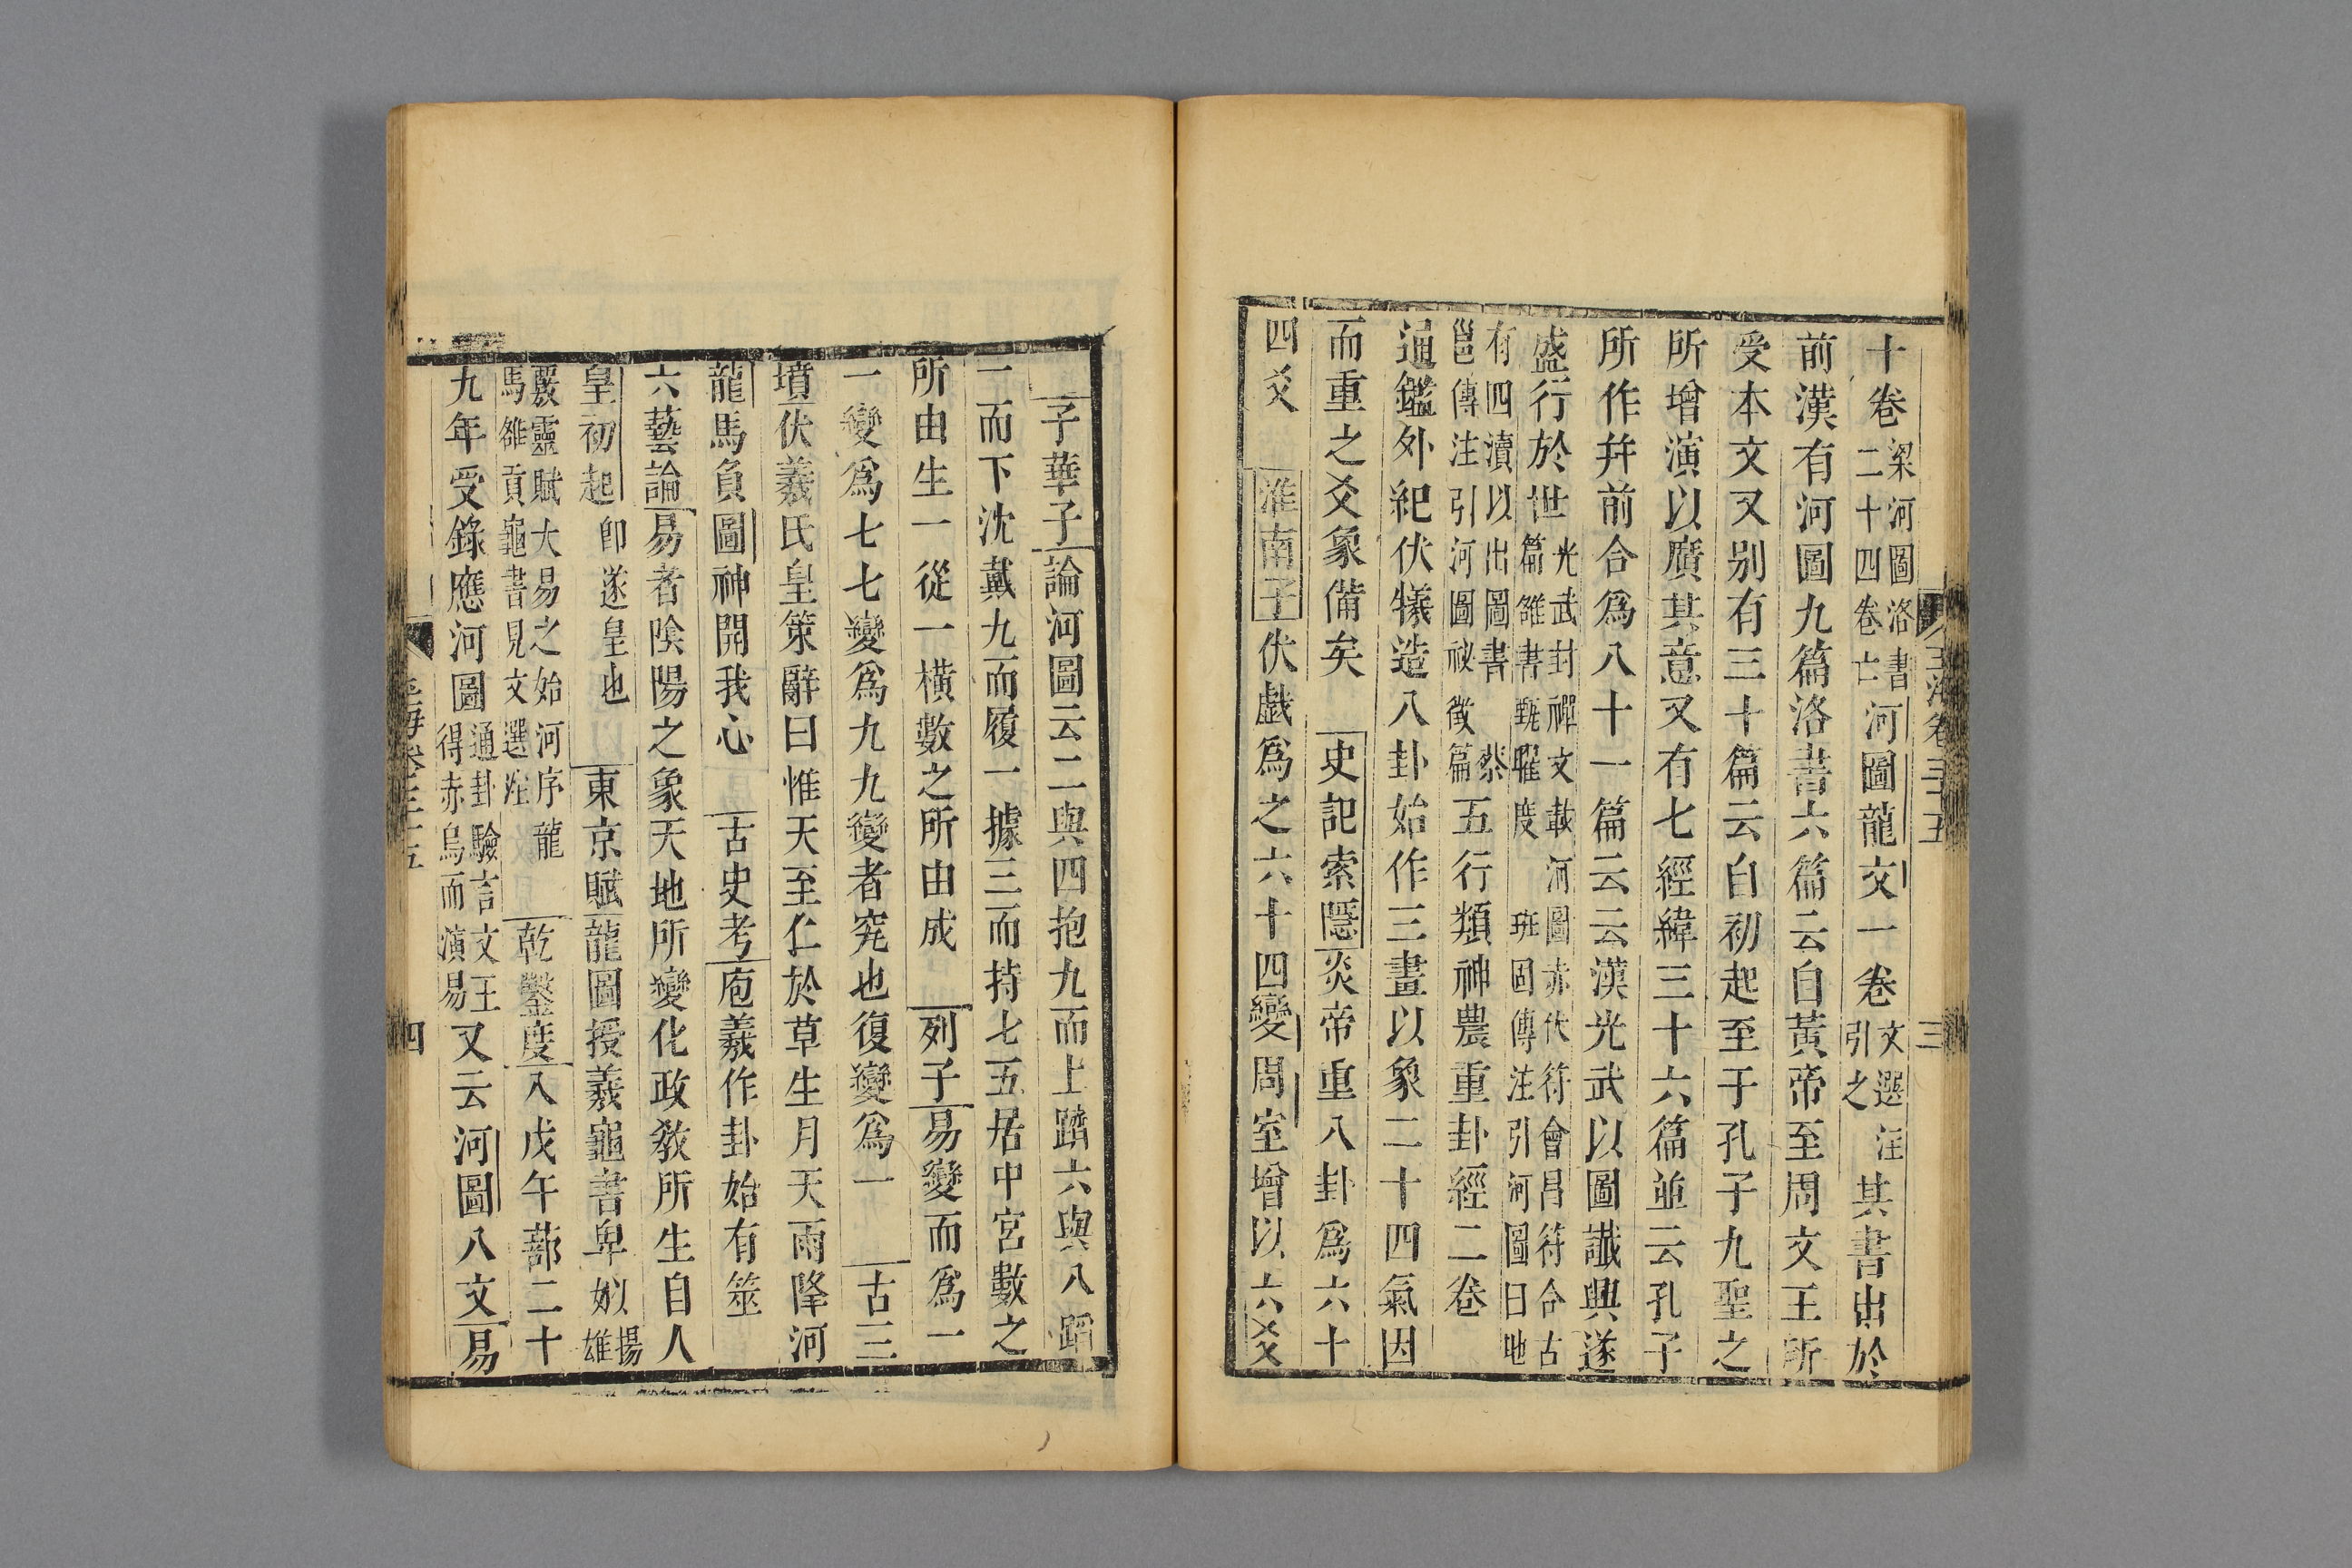 玉海卷三十五 三
十卷梁河圖洛書二十四卷亡河圖龍文一卷文選注引之其書出於
前漢有河圖九篇洛書六篇云自黃帝至周文王所
受本文又别有三十篇云自初起至于孔子九聖之
所增演以廣其意又有七經緯三十六篇並云孔子
所作幷前合爲八十一篇云云漢光武以圖讖興遂
盛行於世光武封禪文載河圖赤伏符會昌符合古篇雒書甄曜度班固傳注引河圖曰地
有四瀆以出圖書蔡邕傳注引河圖祕徵篇五行類神農重卦經二卷
通鑑外紀伏犧造八卦始作三畫以象二十四氣因
而重之爻象備矣 史記索隱炎帝重八卦爲六十
四爻 淮南子伏戲爲之六十四變周室增以六爻
子華子論河圖云二與四抱九而上躋六與八蹈
一而下沈戴九而履一據三而持七五居中宮數之
所由生一從一橫數之所由成 列子易變而爲一
一變爲七七變爲九九變者究也復變爲一 古三
墳伏羲氏皇策辭曰惟天至仁於草生月天雨降河
龍馬負圖神開我心 古史考庖羲作卦始有筮
六藝論易者陰陽之象天地所變化政教所生自人
皇初起卽遂皇也 東京賦龍圖授羲龜書畀姒揚雄
覈靈賦大易之始河序龍馬雒貢龜書見文選注 乾鑿度入戊午蔀二十
九年受錄應河圖通卦驗言文王得赤烏而演易又云河圖八文易
玉海卷三十五 四